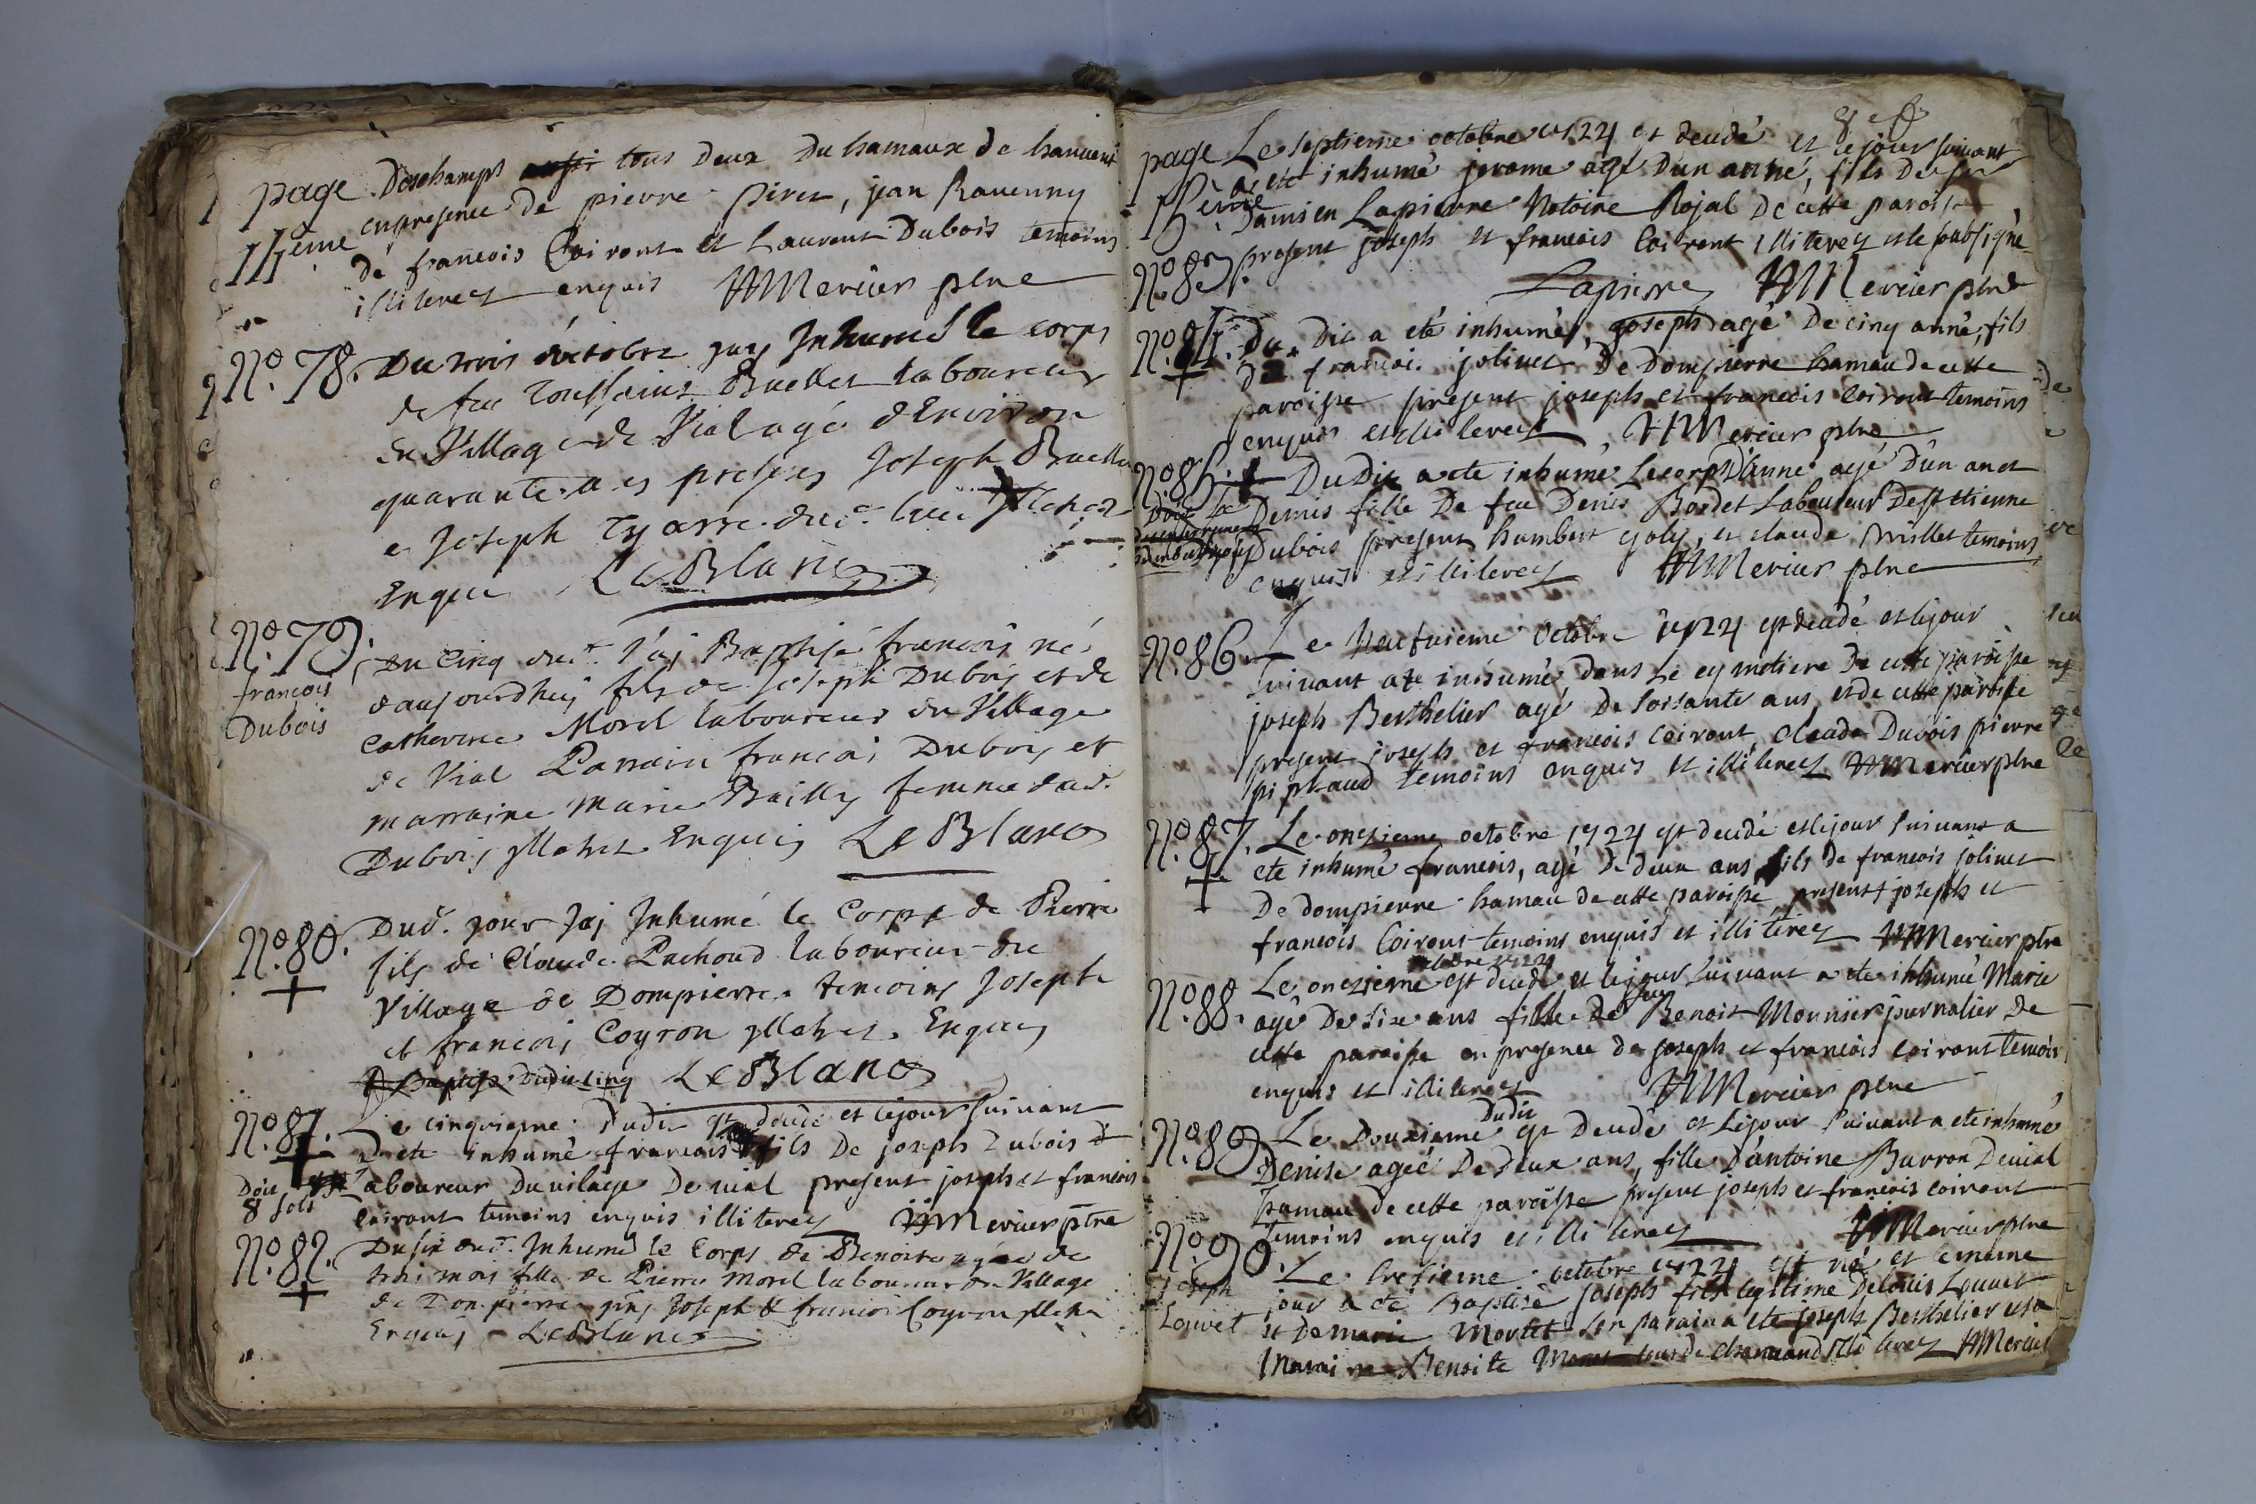 page
14ème
Deschamps tous Deux Du hamaux de
en presence de pierre piret, jean Ravenny
de francois Coiront et Laurent Dubois temoins
illiterez enquis Mercier ptre
No. 78.
Du trois octobre jay Inhumé le corps
de feu Toussaint Buellet laboureur
du Village de Vial agé d'Environ
quarante ans presens Joseph Buellet
e Joseph Tyarre dud. lieu Illeterez
Enquis LeBlanc
No. 79.
francois
Dubois
Du Cinq dud. J'aj Baptisé francois né
d'aujourdhuy fils de Joseph Dubois et de
Catherine Morel laboureur du Village
de Vial Parrain francois Dubois et
marraine Marie Bailly femme dud.
Dubois Illeterez Enquis LeBlanc
No. 80.
Dud. jour Jaj Inhumé le Corps de Pierre
fils de Claude Pachoud laboureur du
Village de Dompierre temoins Joseph
et francois Coyron Illeterez Enquis
LeBlanc
No. 81.
Doit
8 sols
Le cinquieme Dudit est decedé et le jour suivant
a ete inhumé francois fils De joseph Dubois
Laboureur Du vilage De vial present joseph et francois
Coiront temoins enquis illiterez Mercier ptre
No. 82.
Du six dud. Inhumé le Corps de Benoite agée de
trois mois fille de Pierre Morel laboureur du Village
de Dompierre Joseph & francois Coyron
Enquis LeBlanc
page
15ème
8
Le septieme octobre 1724 est decedé et le jour suivant
a ete inhumé jerome agé D'un anné, fils De
Damien Lapierre Notaire Rojal De cette paroisse
No. 83.
present joseph et francois Coiront illiterez et le soussigné
Lapierre Mercier ptre
No. 84.
Du Dit a eté inhumé, joseph agé De cinq anné, fils
De francois jolivet De Dompierre hamau de cette
paroisse present joseph et francois Coiront temoins
enquis et illiterez, Mercier ptre
No. 85.
Du Dit a ete inhumé Le corp D'anne agé D'un an et
Demis fille De feu Denis Bordet Laboureur De st etienne
Dubois present humbert joly, et claude Millet temoins
enquis et illiterez Mercier ptre
No. 86.
Le Neufvieme Octobre 1724 est decedé et le jour
suivant a ete inhumé dans Le cymetiere De cette paroisse
joseph Berthelier agé De soisante ans, et de cette paroisse
present joseph et francois Coiront, Claude Dubois pierre
piphaud temoins enquis et illiterez Mercier ptre
No. 87.
Le onzieme octobre 1724 est decedé et le jour suivant a
ete inhumé francois, agé De deux ans fils de francois jolivet
De dompierre hamau de cette paroisse present joseph et
francois Coiront temoins enquis et illitérez Mercier ptre
No. 88.
octobre 1724
Le onzieme est decedé et le jour suivant a ete inhumé Marie
feu
agé De six ans fille De Benoit Monnier journalier De
cette paroisse en presence de joseph et francois Coiront temoin
enquis et illiterez Mercier ptre
No. 89
Dudit
Le Douzieme est Decedé et Le jour suivant a ete inhumé
Denise ageé De deux ans, fille D'antoine Burron De vial
hamau de cette paroisse present joseph et francois Coiront
temoins enquis et illiterez Mercier ptre
No. 90.
joseph
Louvet
Le trezieme octobre 1724 est né et le meme
jour a eté Baptisé joseph fils legitime De Louis Louvet
et De marie Mortet son parain a ete joseph Berthelier et sa
Maraine Benoite illiterez Mercier